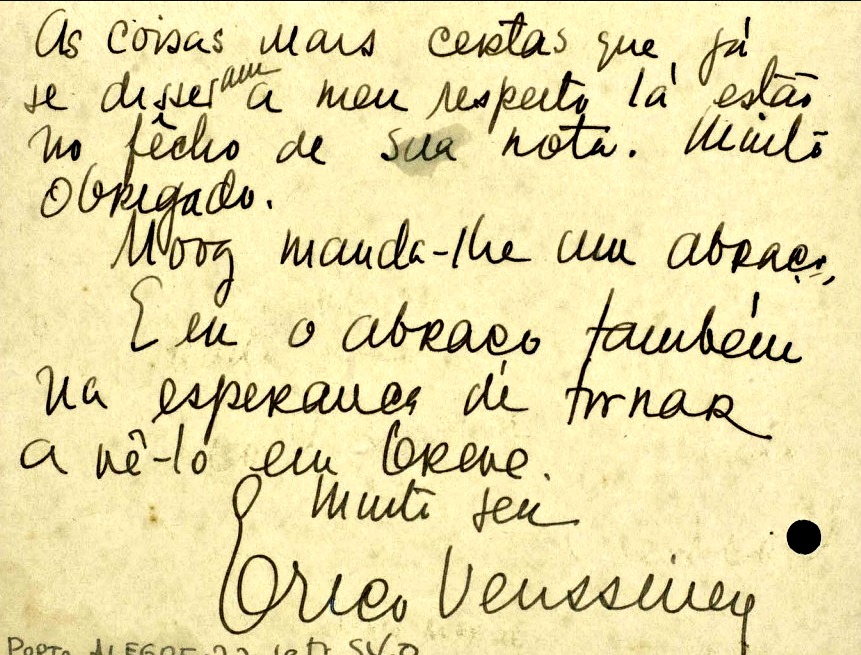 As coisas mais certas que já
se disseram a meu respeito lá estão
no fêcho de sua nota. Muito
obrigado.
Moog manda-lhe um abraço,
E eu o abraço também
na esperança de tornar
a vê-lo em breve.
Muito seu
Erico Verissimo
PORTO ALEGRE